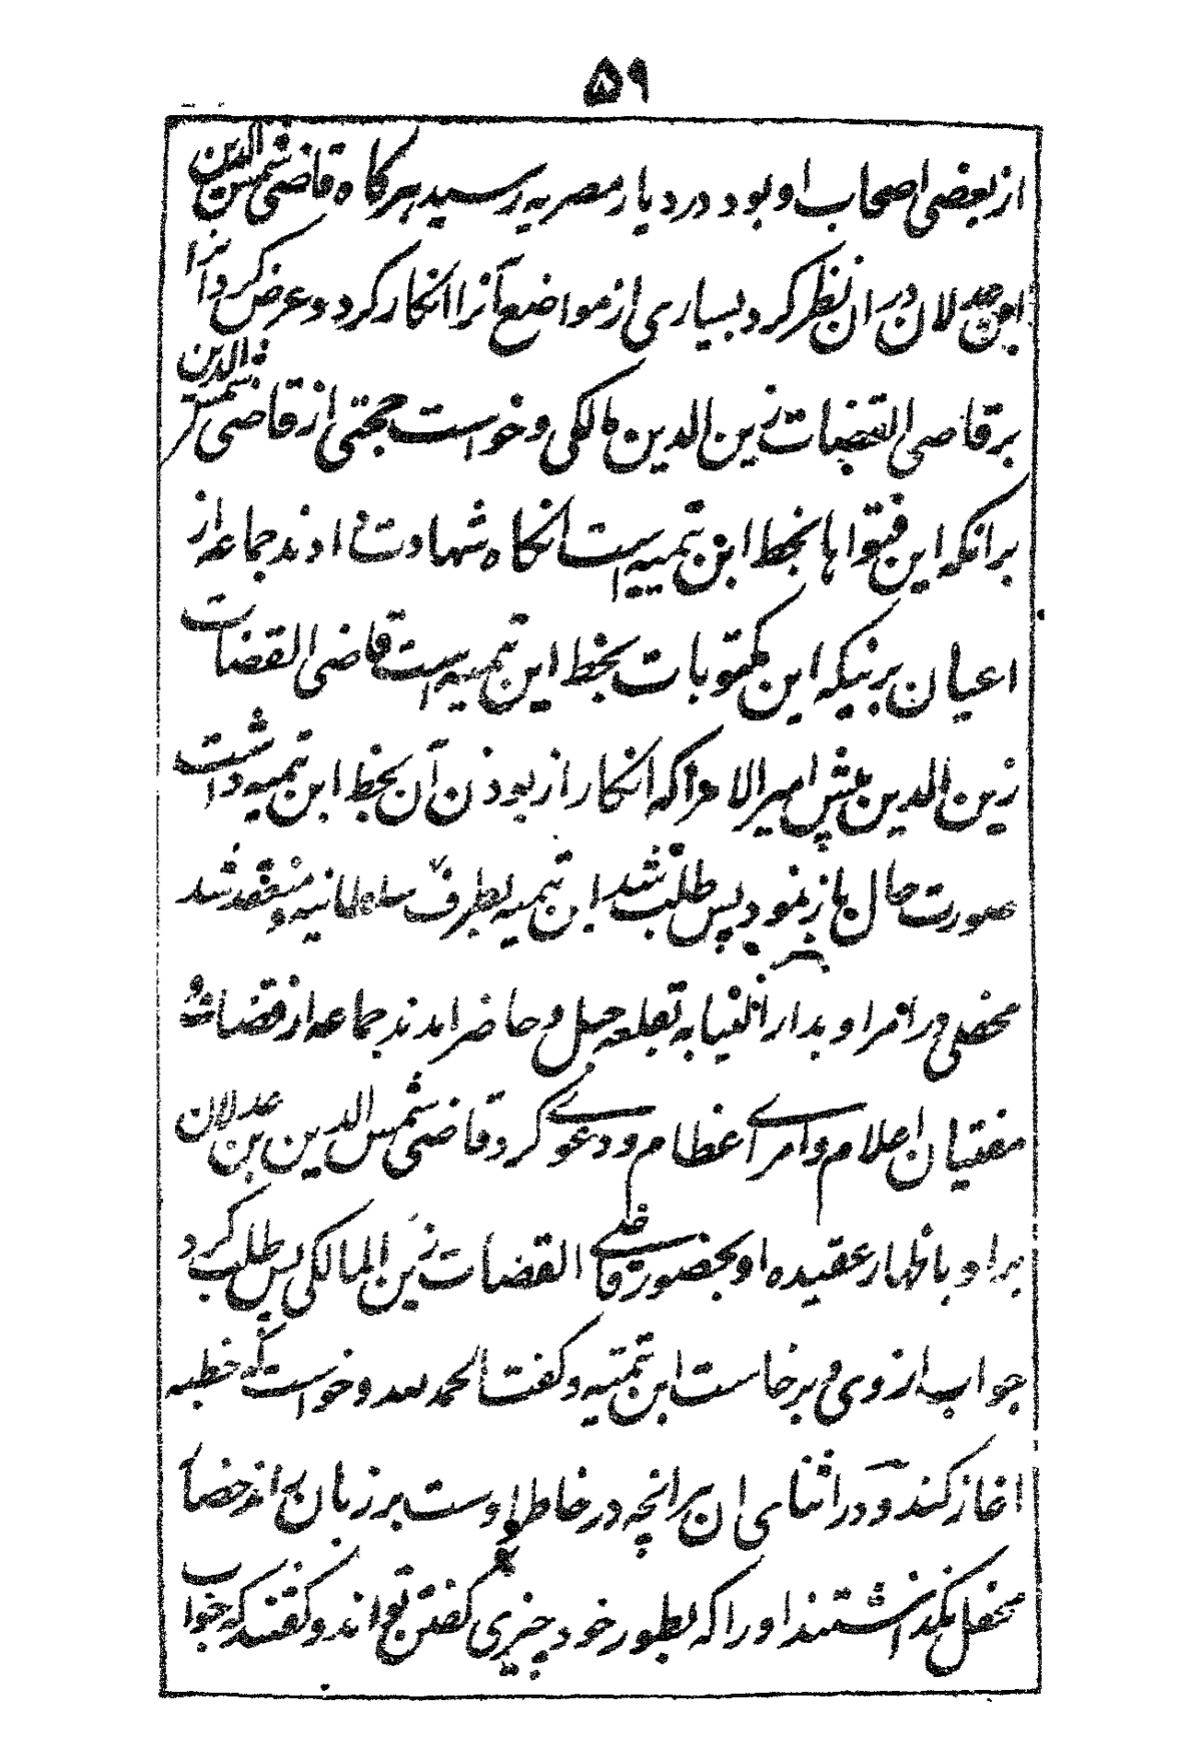 ۵۹
از بعضی اصحاب او بود در دیار مصریه رسید هرگاه قاضی شمس الدین
ابن عدلان دران نظر کرد بسیاری از مواضع آنرا انکار کرد و عرض کرد انرا
بر قاضی القضات زین الدین مالکی و خواست حجتی از قاضی شمس الدین
برانکه این فتوا ها بخط ابن تیمیه است انگاه شهادت دادند جماعه از
اعیان برنیکه این مکتوبات بخط ابن تیمیه است قاضی القضات
زین الدین پیش امیر الامرا که انکار از بودن آن بخط ابن تیمیه داشت
صورت حال باز نمود پس طلب شد ابن تیمیه بطرف سلطانیه و منعقد شد
محفلی در امر او بدار النیابه بقلعه جبل و حاضر امدند جماعه از قضات و
مفتیان اعلام و امرای عظام و دعوی کرد قاضی شمس الدین بن عدلان
بر او باظهار عقیده او بحضور قاضی القضات زین المالکی پس طلب کرد
جواب از وی و برخاست ابن تیمیه و گفت الحمد لله و خواست که خطبه
اغاز کند و در اثنای ان برانچه در خاطر اوست بر زبان اند حضار
محفل نگذاشتند او را که بطور خود چیزی گفتن تواند و گفتند که جواب